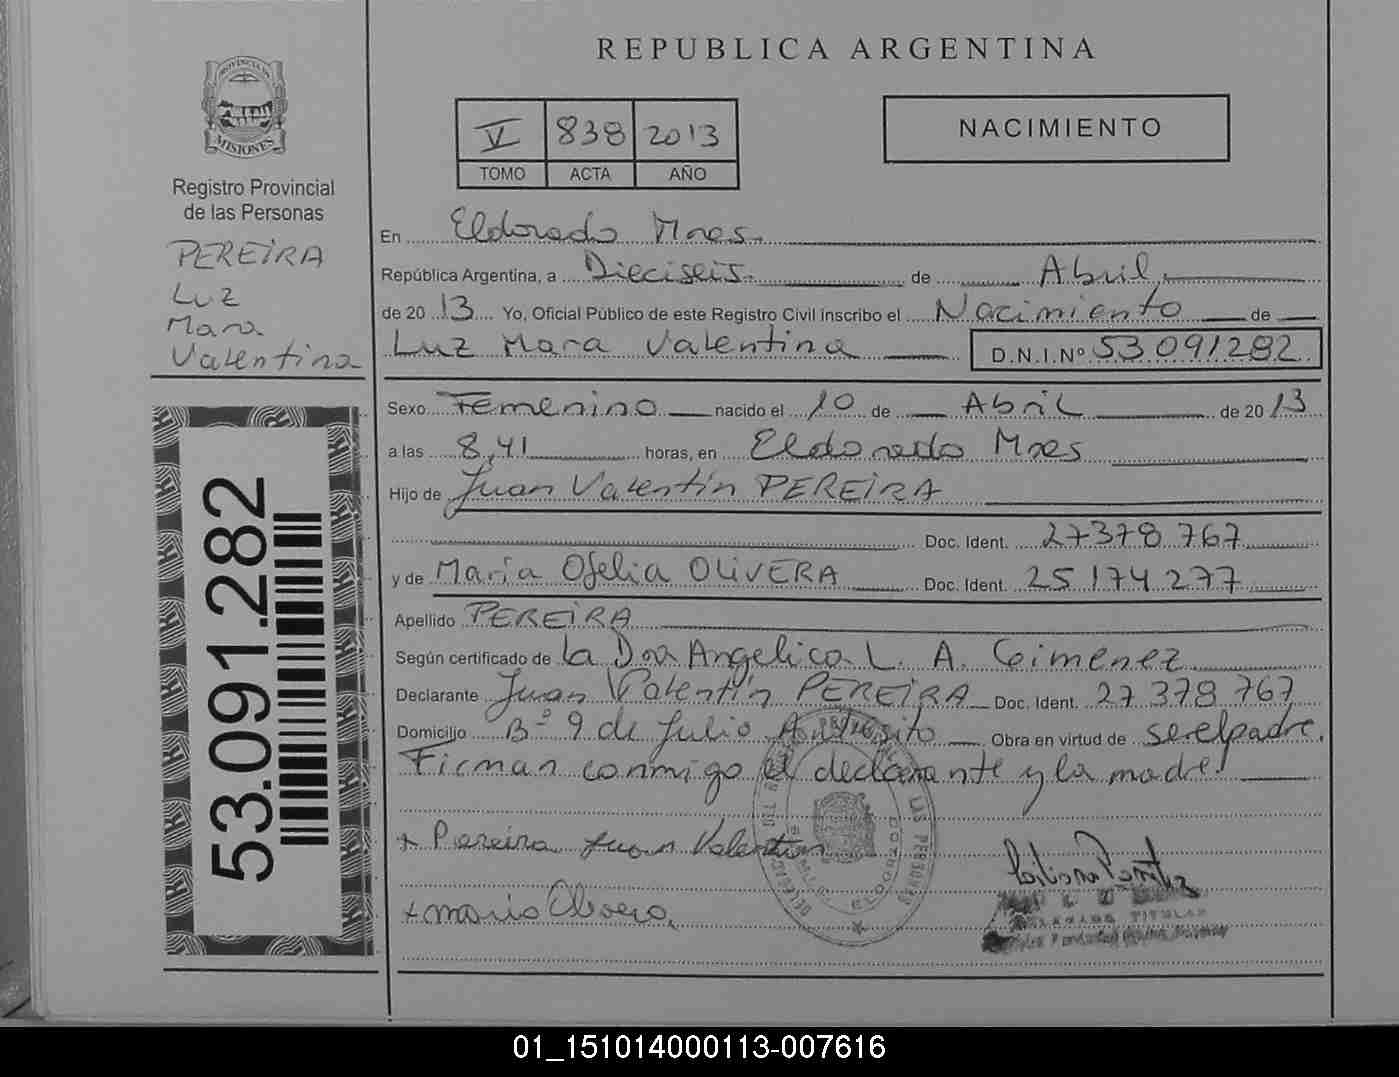 REPUBLICA ARGENTINA
PROVINCIA DE
MISIONES
Registro Provincial
de las Personas
PEREIRA
Luz
Mara
Valentina
53.091.282
V 838 2013
TOMO ACTA AÑO
NACIMIENTO
En Eldorado Mnes.
República Argentina, a Dieciseis. de Abril,
de 20 13 Yo, Oficial Público de este Registro Civil inscribo el Nacimiento de
Luz Mara Valentina D.N.I.Nº 53 091282
Sexo Femenino nacido el 10 de Abril de 20 13
a las 8,41 horas, en Eldorado Mnes
Hijo de Juan Valentín PEREIRA
Doc. Ident. 27378 767
y de María Ofelia OLIVERA Doc. Ident. 25 174 277
Apellido PEREIRA
Según certificado de la Dra Angelica L. A. Gimenez
Declarante Juan Valentín PEREIRA Doc. Ident. 27 378 767
Domicilio Bº 9 de Julio Obra en virtud de ser el padre.
Firman conmigo el declarante y la madre.
+ Pereira Juan Valentin
+ Maria
TITULAR
01_151014000113-007616